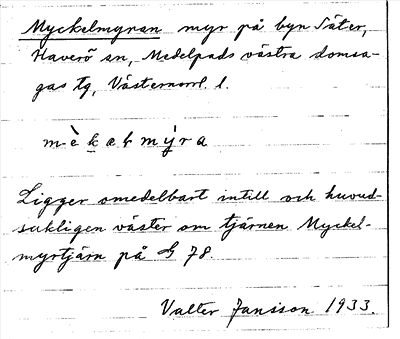 Myckelmyran myr på byn Säter,
Haverö sn, Medelpads västra domsa-
gas tg, Västernorrl. l.
mèkəlmýra
Ligger omedelbart intill och huvud-
sakligen väster om tjärnen Myckel-
myrtjärn på 78.
Valter Jansson 1933.